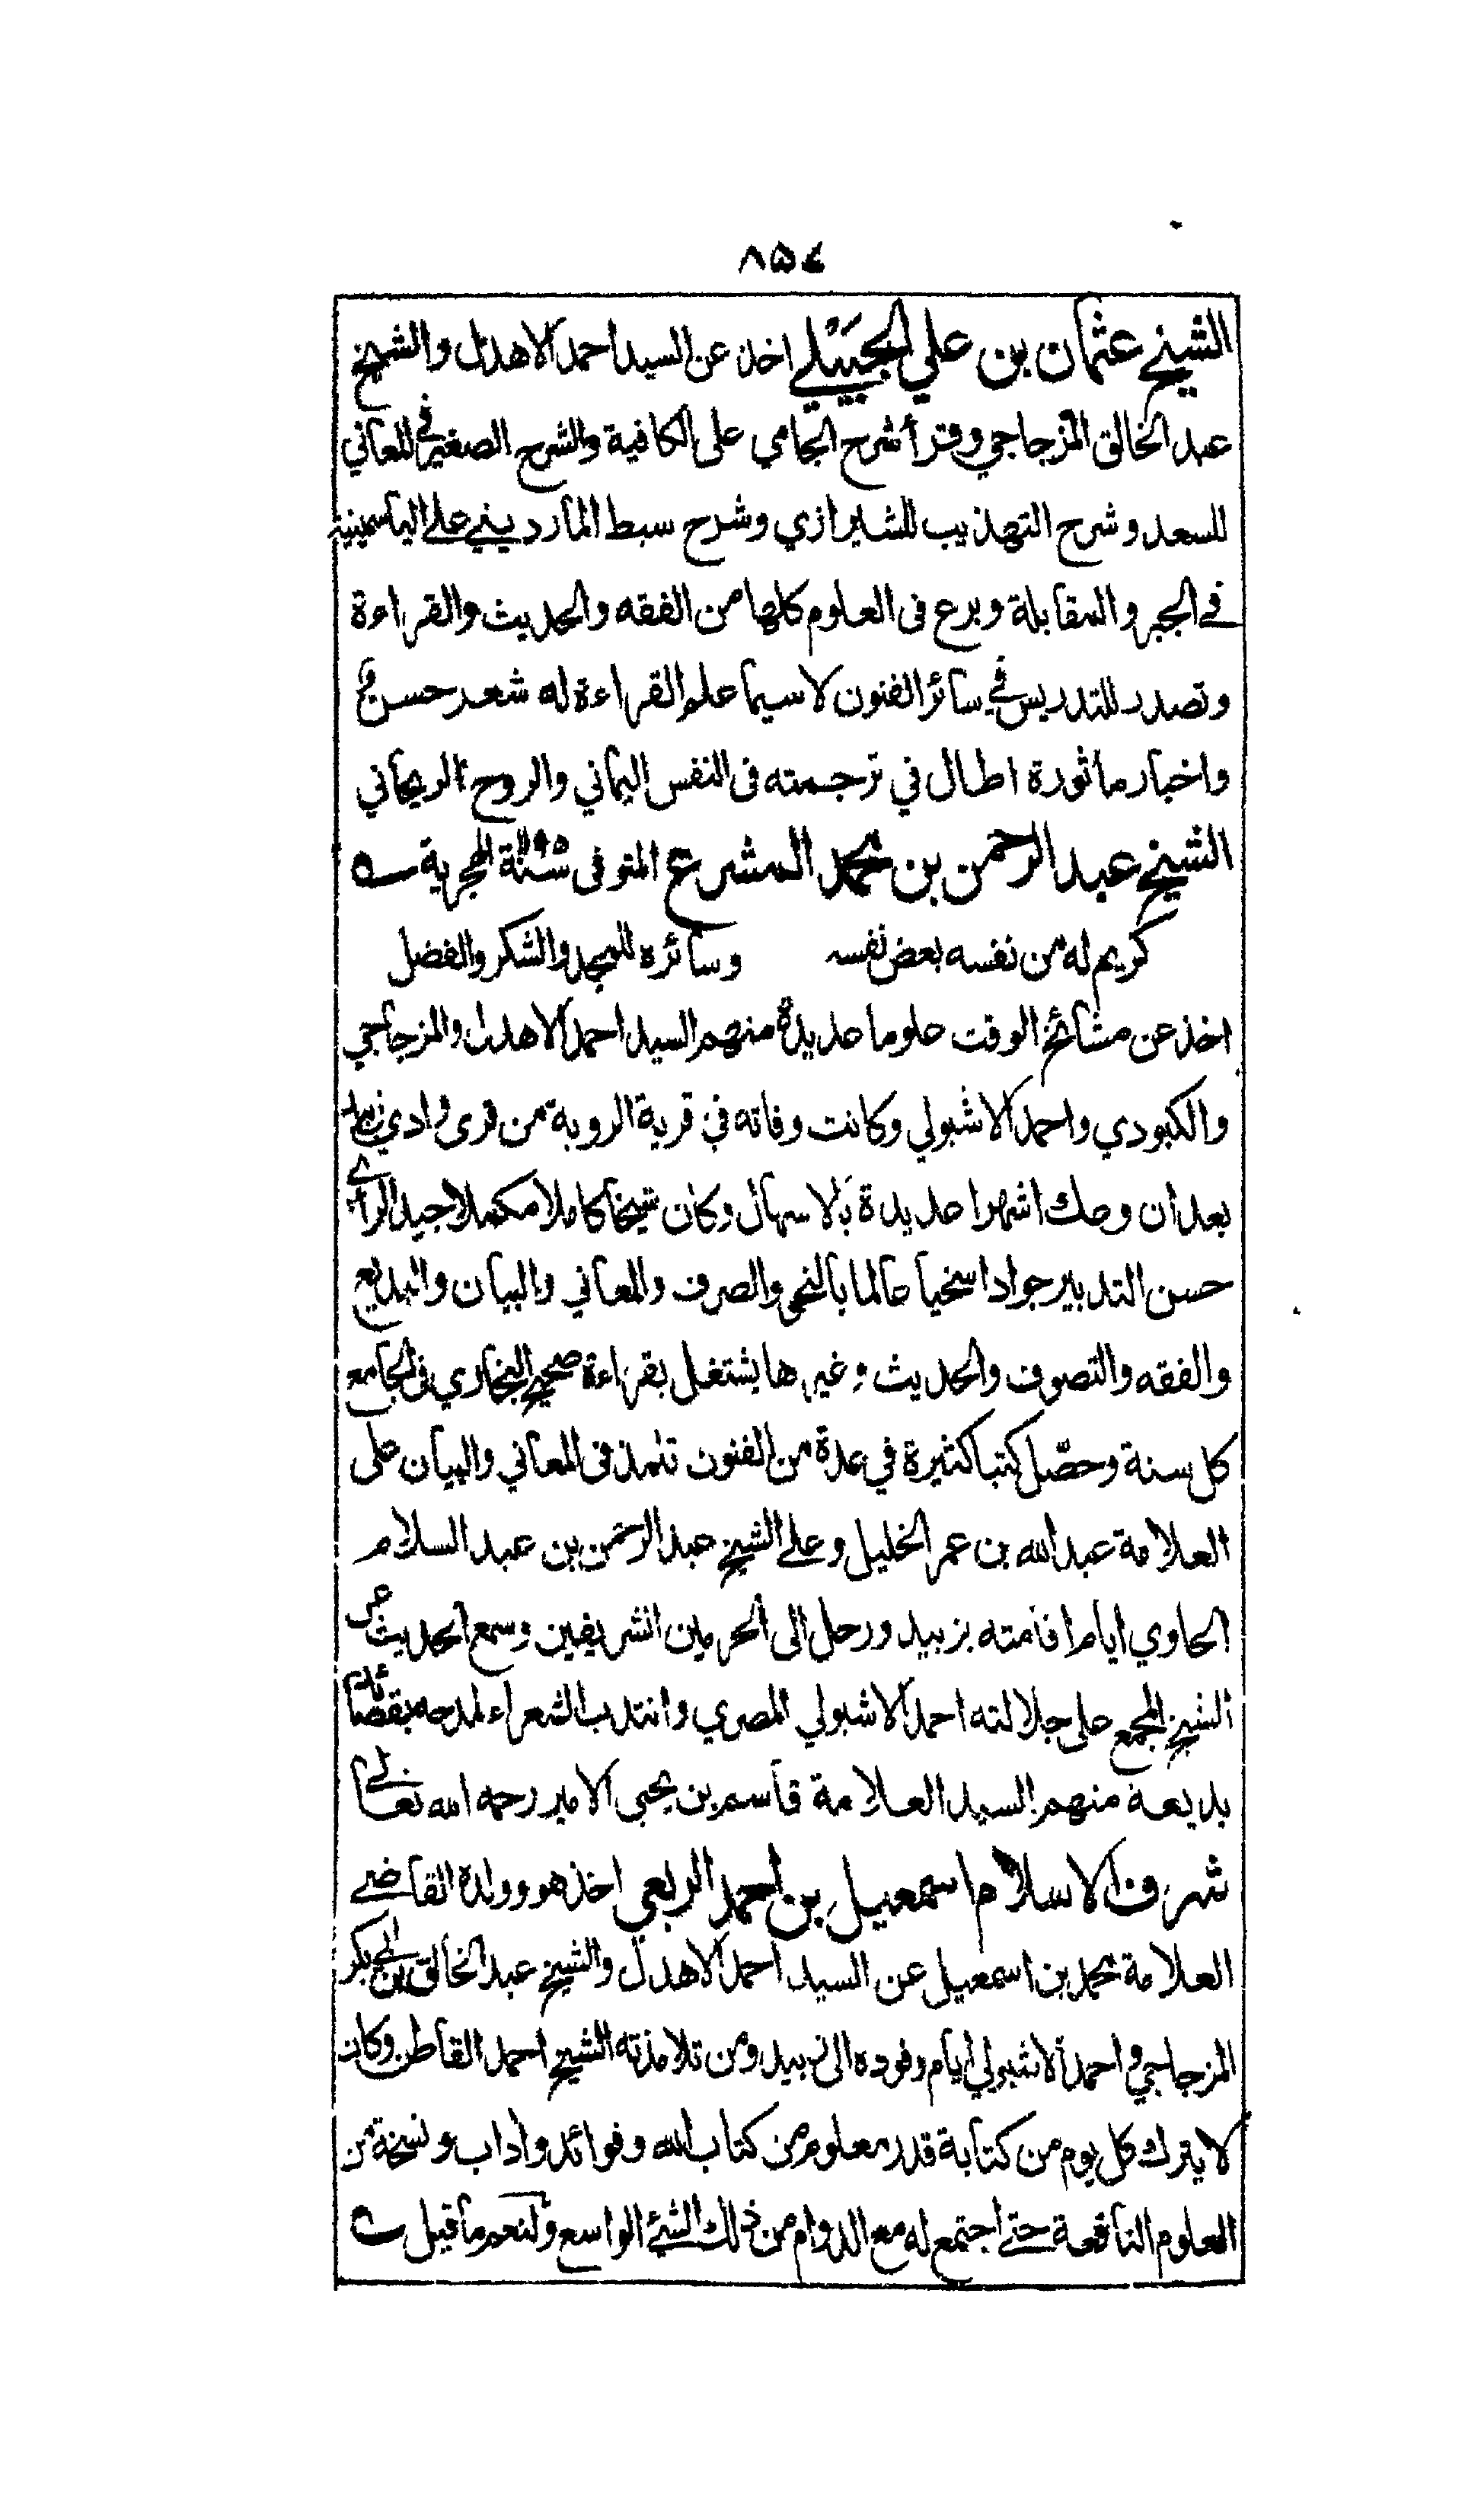 ٨٥٤
الشيخ عثمان بن علي الجبيلي اخذ عن السيد احمد الاهدل والشيخ
عبد الخالق المزجاجي وقرأ شرح الجامي على الكافية والشرح الصغير في المعاني
للسعد وشرح التهذيب للشيرازي وشرح سبط المارديني على الياسمينية
في الجبر والمقابلة وبرع فى العلوم كلها من الفقه والحديث والقراءة
وتصدر للتدريس في سائر الفنون لاسيما علم القراءة له شعر حسن
واخبار ماثورة اطال في ترجمته فى النفس اليماني والروح الريحاني
الشيخ عبد الرحمن بن محمد المشرع المتوفى سنة الهجرية
كريم له من نفسه بعض نفسه وسائره للمجد والشكر والفضل
اخذ عن مشائخ الوقت علوما عديدة منهم السيد احمد الاهدل والمزجاجي
والكبودي واحمد الاشبولي وكانت وفاته في قرية الروية من قرى وادي زبيد
بعد ان وعك اشهرا عديدة بالاسهال وكان شيخا كاملا مكملا جيد الراي
حسن التدبير جوادا سخيا عالما بالنحو والصرف والمعاني والبيان والبديع
والفقه والتصوف والحديث وغيرها يشتغل بقراءة صحيح البخاري فى الجامع
كل سنة وحصّل كتبا كثيرة في عدة من الفنون تلمذ فى المعاني والبيان على
العلامة عبد الله بن عمر الخليل وعلى الشيخ عبد الرحمن بن عبد السلام
الحاوي ايام اقامته بزبيد ورحل الى الحرمين الشريفين وسمع الحديث عن
الشيخ المجمع على جلالته احمد الاشبولي المصري وانتدب الشعراء لمدحه بقصائد
بديعة منهم السيد العلامة قاسم بن يحيى الامير رحمه الله تعالى
شرف الاسلام اسمعيل بن احمد الربعي اخذ هو وولده القاضي
العلامة محمد بن اسمعيل عن السيد احمد الاهدل والشيخ عبد الخالق بن ابي بكر
المزجاجي واحمد الاشبولي ايام وفوده الى زبيد ومن تلامذته الشيخ احمد القاطن وكان
لا يترك كل يوم من كتابة قدر معلوم من كتاب الله وفوائد واداب ونسخة من
العلوم النافعة حتى اجتمع له مع الدوام من ذلك الشئ الواسع ولنعم ما قيل